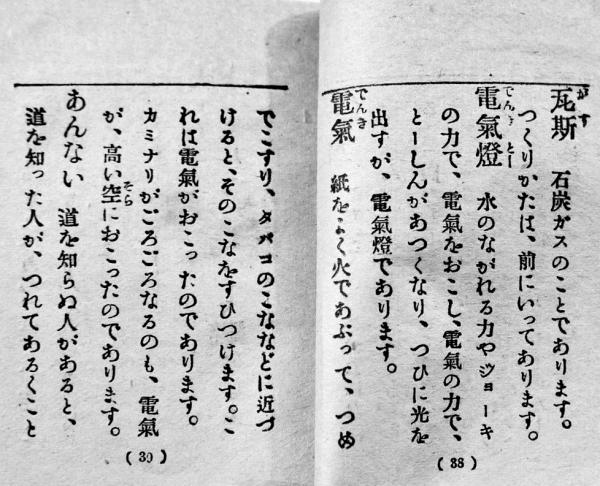 瓦斯 石炭ガスのことであります。
つくりかたは、前にいってあります。
電氣燈 水のながれる力やジョーキ
の力で、電氣をおこし、電氣の力で、
とーしんがあつくなり、つひに光を
出すが、電氣燈であります。
電氣 紙をよく火であぶって、つめ
(38)
でこすり、タバコのこななどに近づ
けると、そのこなをすひつけます。こ
れは電氣がおこったのであります。
カミナリがごろごろなるのも、電氣
が、高い空におこったのであります。
あんない 道を知らぬ人があると、
道を知った人が、つれてあるくこと
(39)